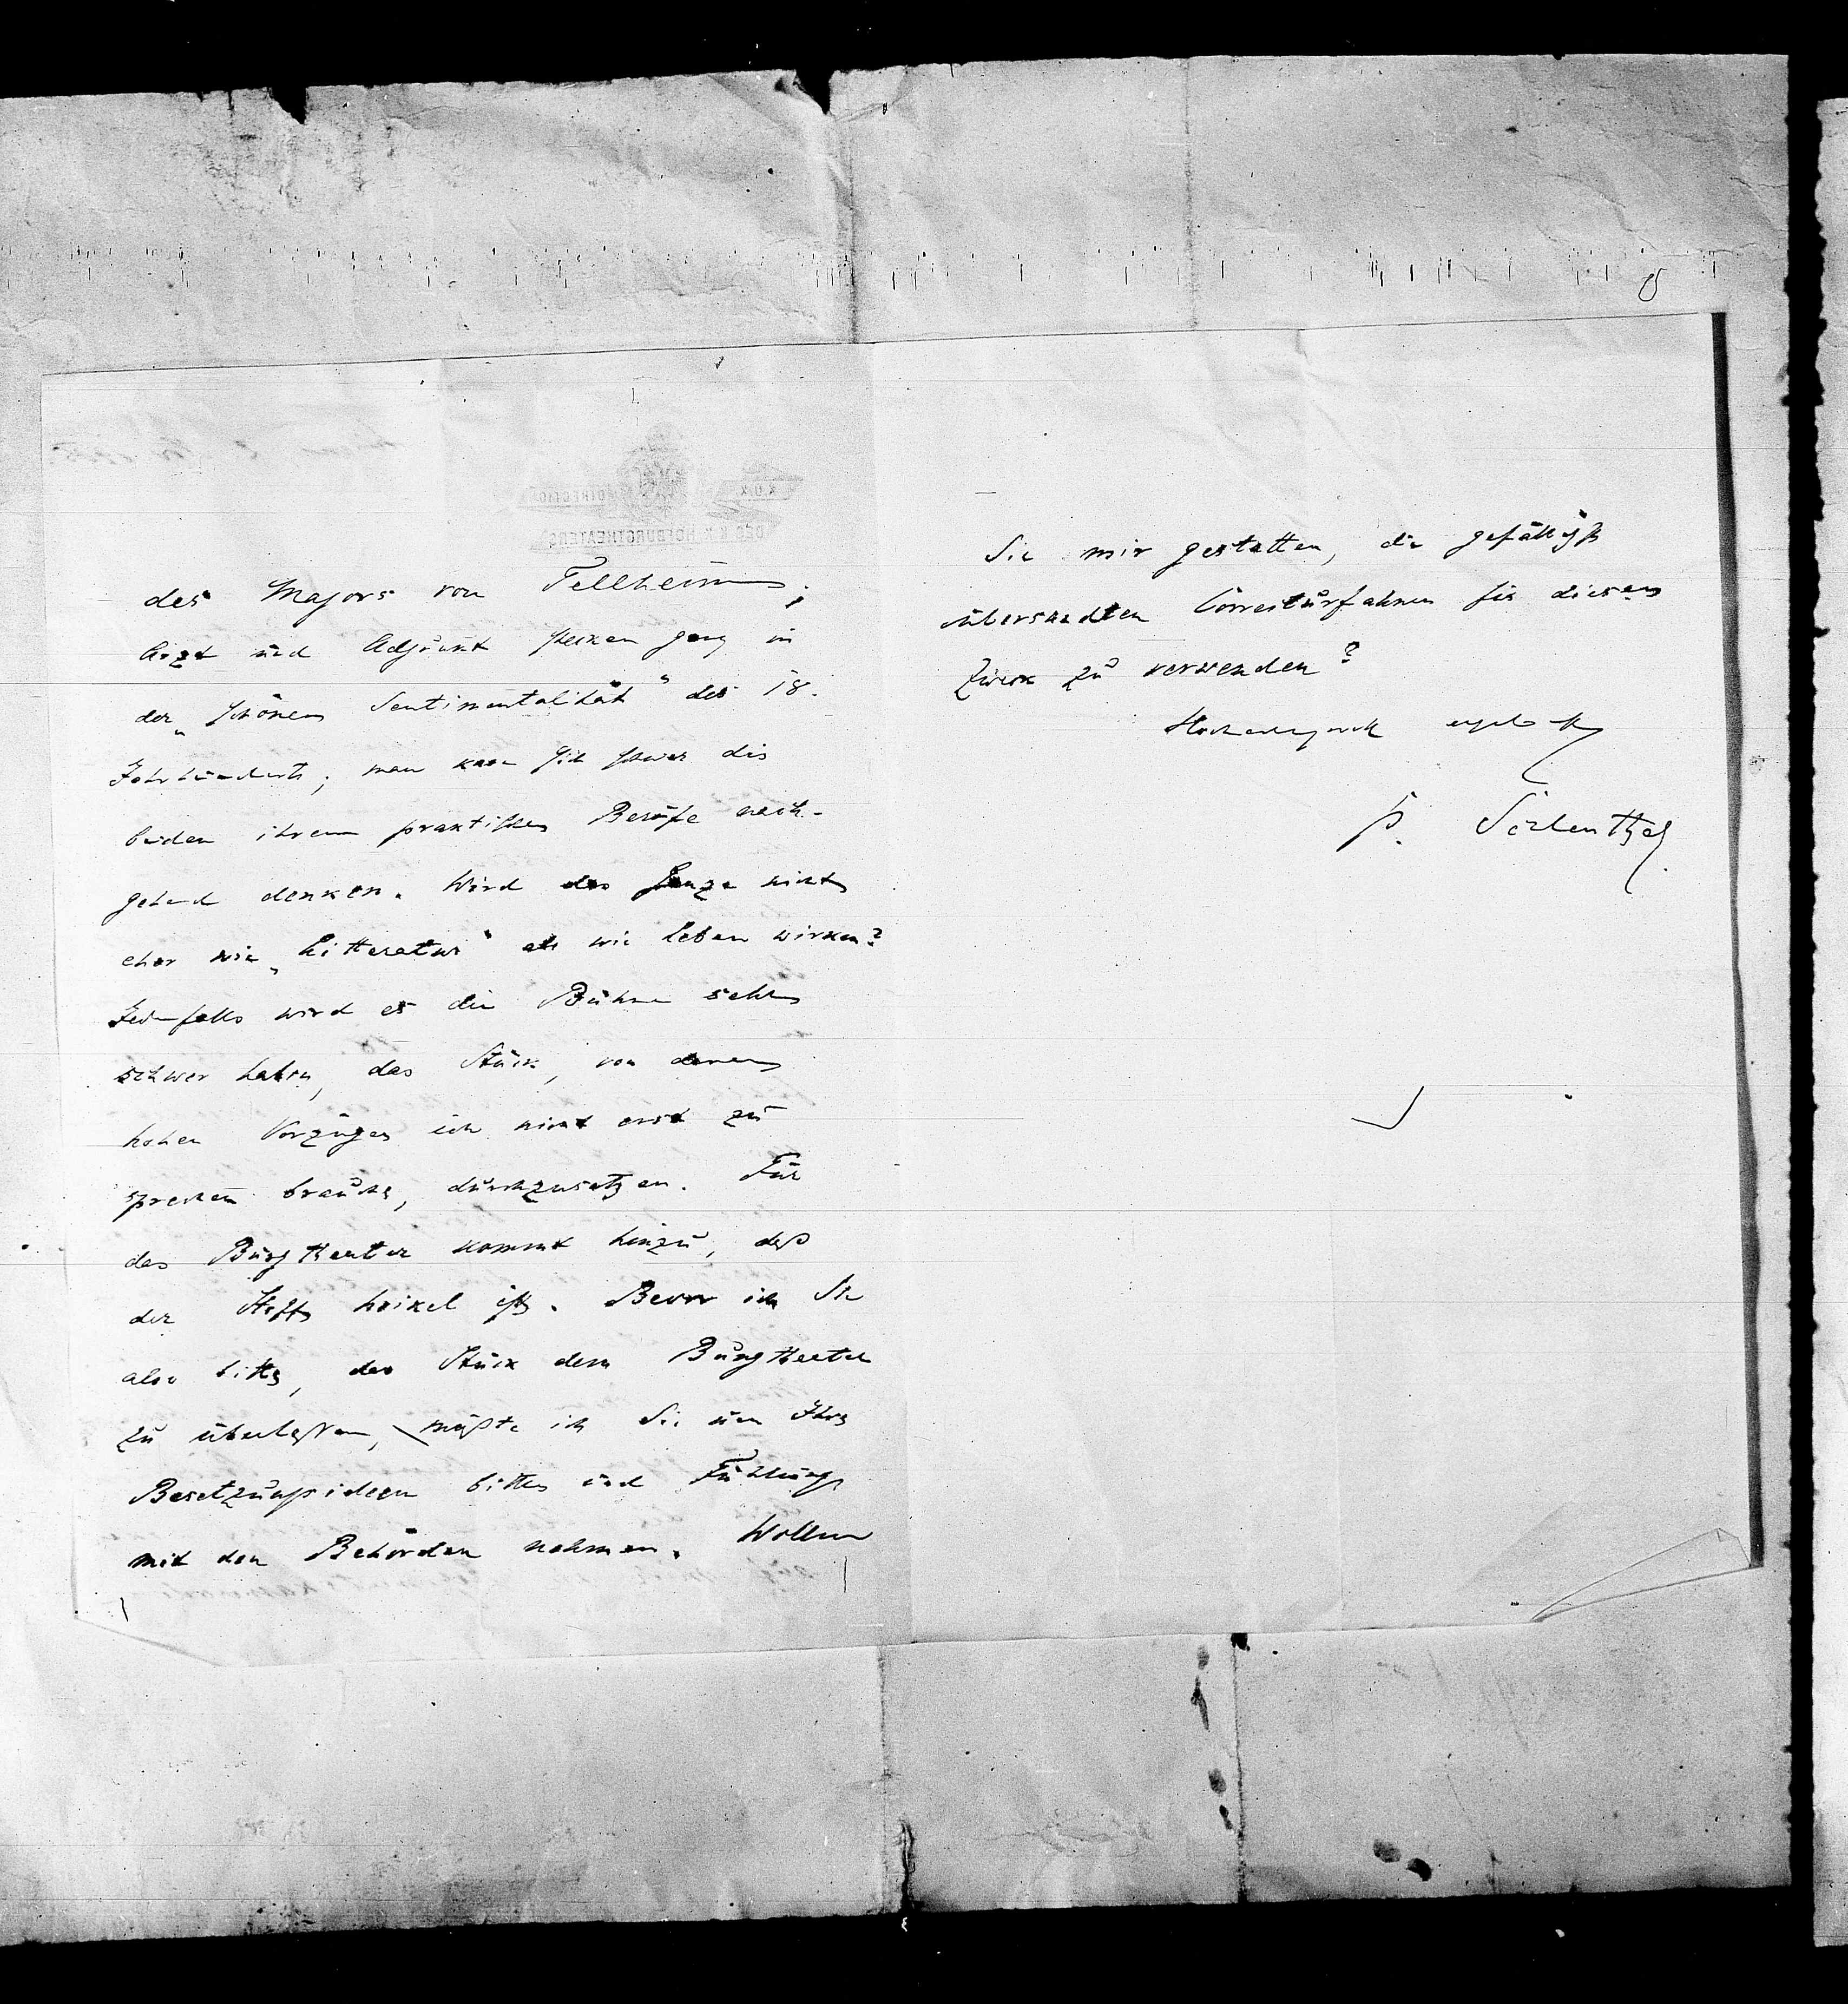 des Majors von Tellheim;
Arzt und Adjunkt stecken ganz in
der „schönen Sentimentalität“ des 18.
Jahrhunderts; man kann sich schwer die
beiden ihrem praktischen Berufe nach-
gehend denken. Wird das Ganze nicht
eher wie „Litteratur“ als wie Leben wirken?
Jedenfalls wird es die Bühne sehr
schwer haben, das Stück, von deren
hohen Vorzügen ich nicht erst zu
sprechen brauche, durchzusetzen. Für
das Burgtheater kommt hinzu, daß
der Stoff heikel ist. Bevor ich Sie
also bitte, das Stück dem Burgtheater
zu überlassen, müßte ich Sie um Ihre
Besetzungsideen bitten und Fühlung
mit den Behörden nehmen. Wollen
Sie mir gestatten, die gefälligst
übersandten Correcturfahnen für diesen
Zweck zu verwenden?
Hochachtungsvoll ergebenst
P. Schlenther.